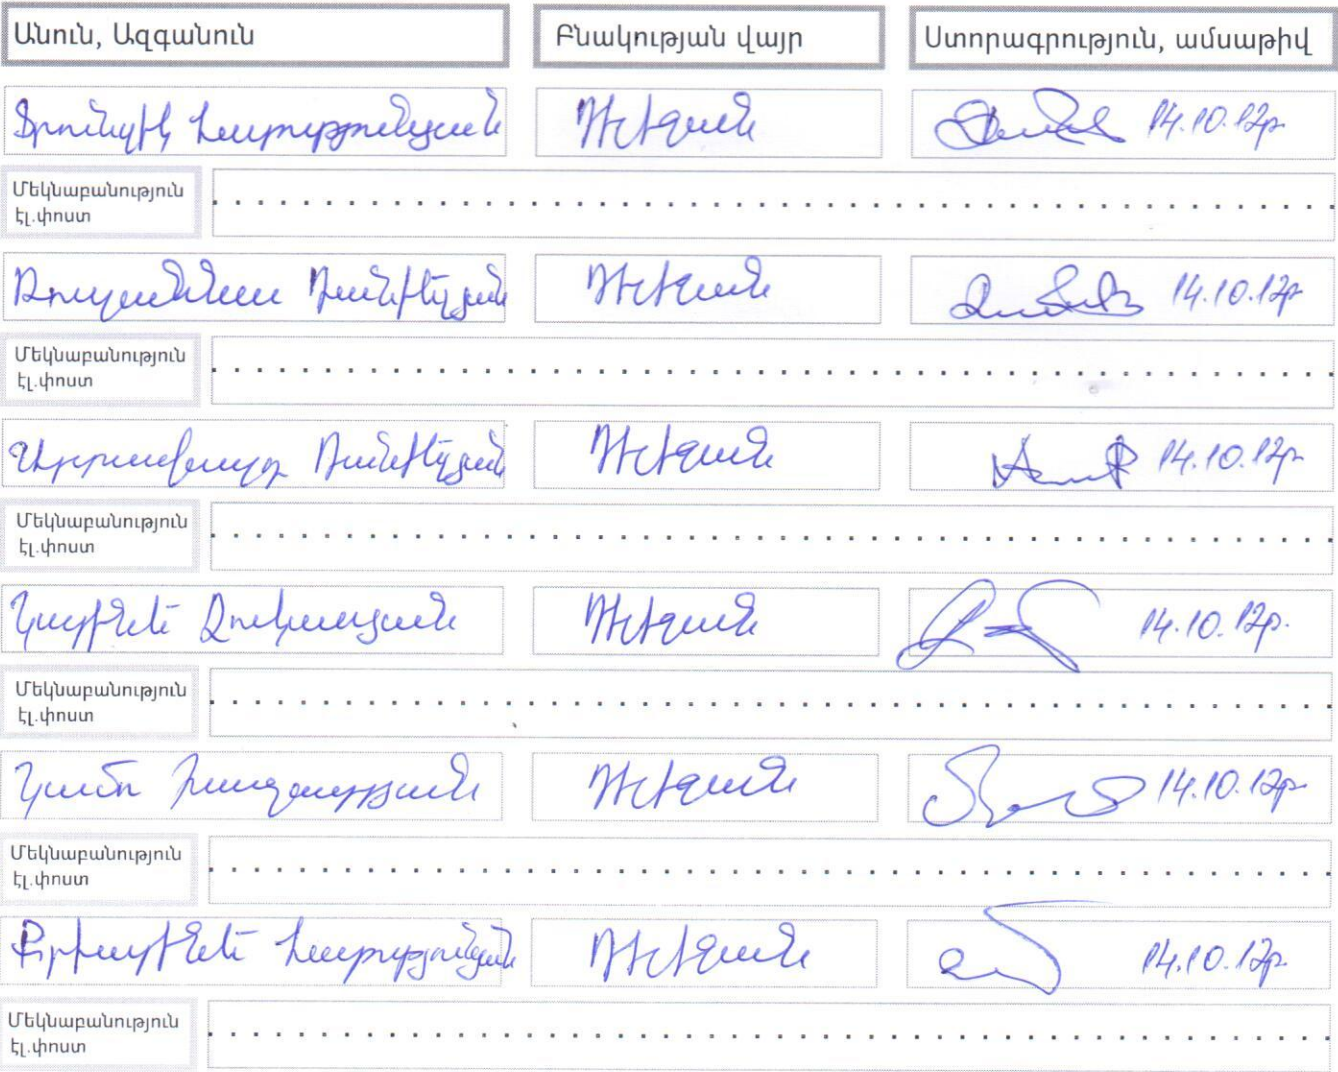 Անուն, Ազգանուն Բնակության վայր Ստորագրություն, ամսաթիվ
Ֆրունզիկ Հարությունյան Դիլիջան 14.10.12թ
Մեկնաբանություն
էլ.փոստ
Ռուզաննա Դանիելյան Դիլիջան 14.10.12թ
Մեկնաբանություն
էլ.փոստ
Դանիելյան Դիլիջան 14.10.12թ
Մեկնաբանություն
էլ.փոստ
Կարինե Ղուկասյան Դիլիջան 14.10.12թ.
Մեկնաբանություն
էլ.փոստ
Կամո Դիլիջան 14.10.12թ
Մեկնաբանություն
էլ.փոստ
Քրիստինե Հարությունյան Դիլիջան 14.10.12թ.
Մեկնաբանություն
էլ.փոստ